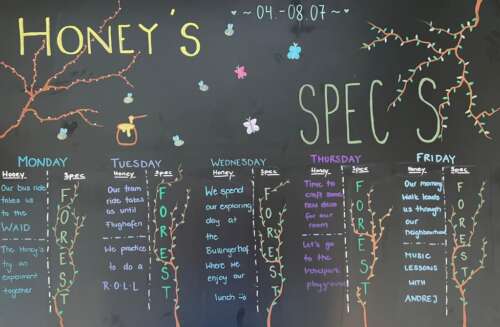 HONEY'S
~ ♥ 04.-08.07 ♥ ~
SPEC'S
MONDAY
Honey
Spec
Our bus ride
takes us
to the
WAID
The Honey's
try an
experiment
together
FOREST
TUESDAY
Honey
Spec
Our tram
ride takes
us until
Flughafen
We practice
to do a
R.O.L.L
FOREST
WEDNESDAY
Honey
Spec
We spend
our exploring
day at
the
Bullingerhof
where we
enjoy our
lunch →
FOREST
THURSDAY
Honey
Spec
Time to
craft some
new deco
for our
room
Let's go
to the
playground
FOREST
FRIDAY
Honey
Spec
Our morning
Walk leads
us through
our
Neighbourhood
MUSIC
LESSONS
WITH
ANDREJ
FOREST